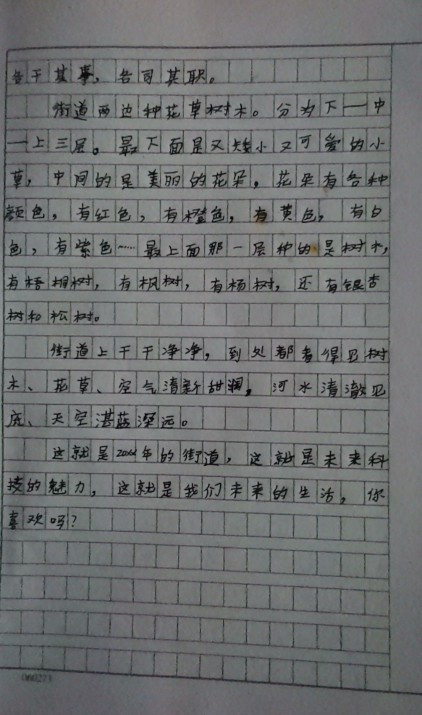 各干其事，各司其职。
街道两边种花草树木。分为下一中
一上三层。最下面是又矮小又可爱的小
草，中间的是美丽的花朵，花朵有各种
颜色，有红色，有橙色，有黄色，有白
色，有紫色……最上面那一层种的是树木，
有梧桐树，有枫树，有杨树，还有银杏
树和松树。
街道上干干净净，到处都看得见树
木、花草、空气清新甜润，河水清澈见
底、天空湛蓝深远。
这就是年的街道，这就是未来科
技的魅力，这就是我们未来的生活，你
喜欢吗？
060271